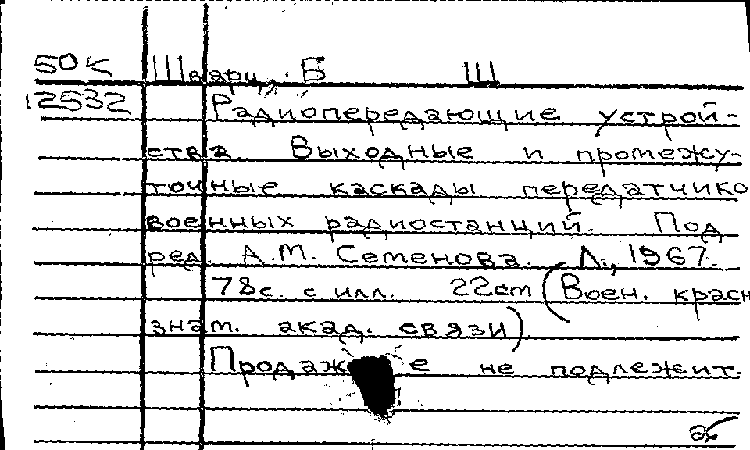 50К Шварц, Б Ш
12532 Радиопередающие устрой-
ства. Выходные и промежу-
точные каскады передатчико
военных радиостанций. Под
ред. А.М. Семенова. Л., 1967.
78с. с илл. 22cm (Воен. красн
знам. акад. связи)
Продаже не подлежит.